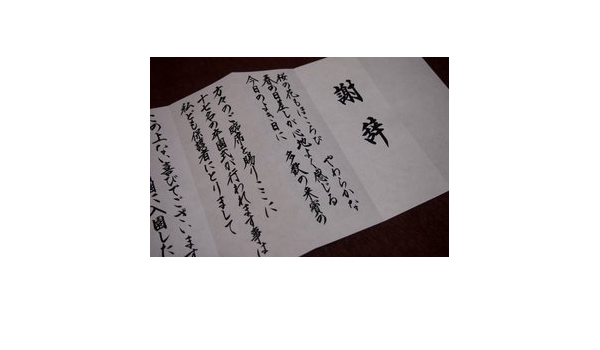 謝辞
桜の花もほころび やわらかな
春の日差しが心地よく感じる
今日のよき日に 多数の来賓の
方々のご臨席を賜り、ここに
十七名の卒園式が行われます事は
私ども保護者にとりまして
この上ない喜びでございます
園に入園した